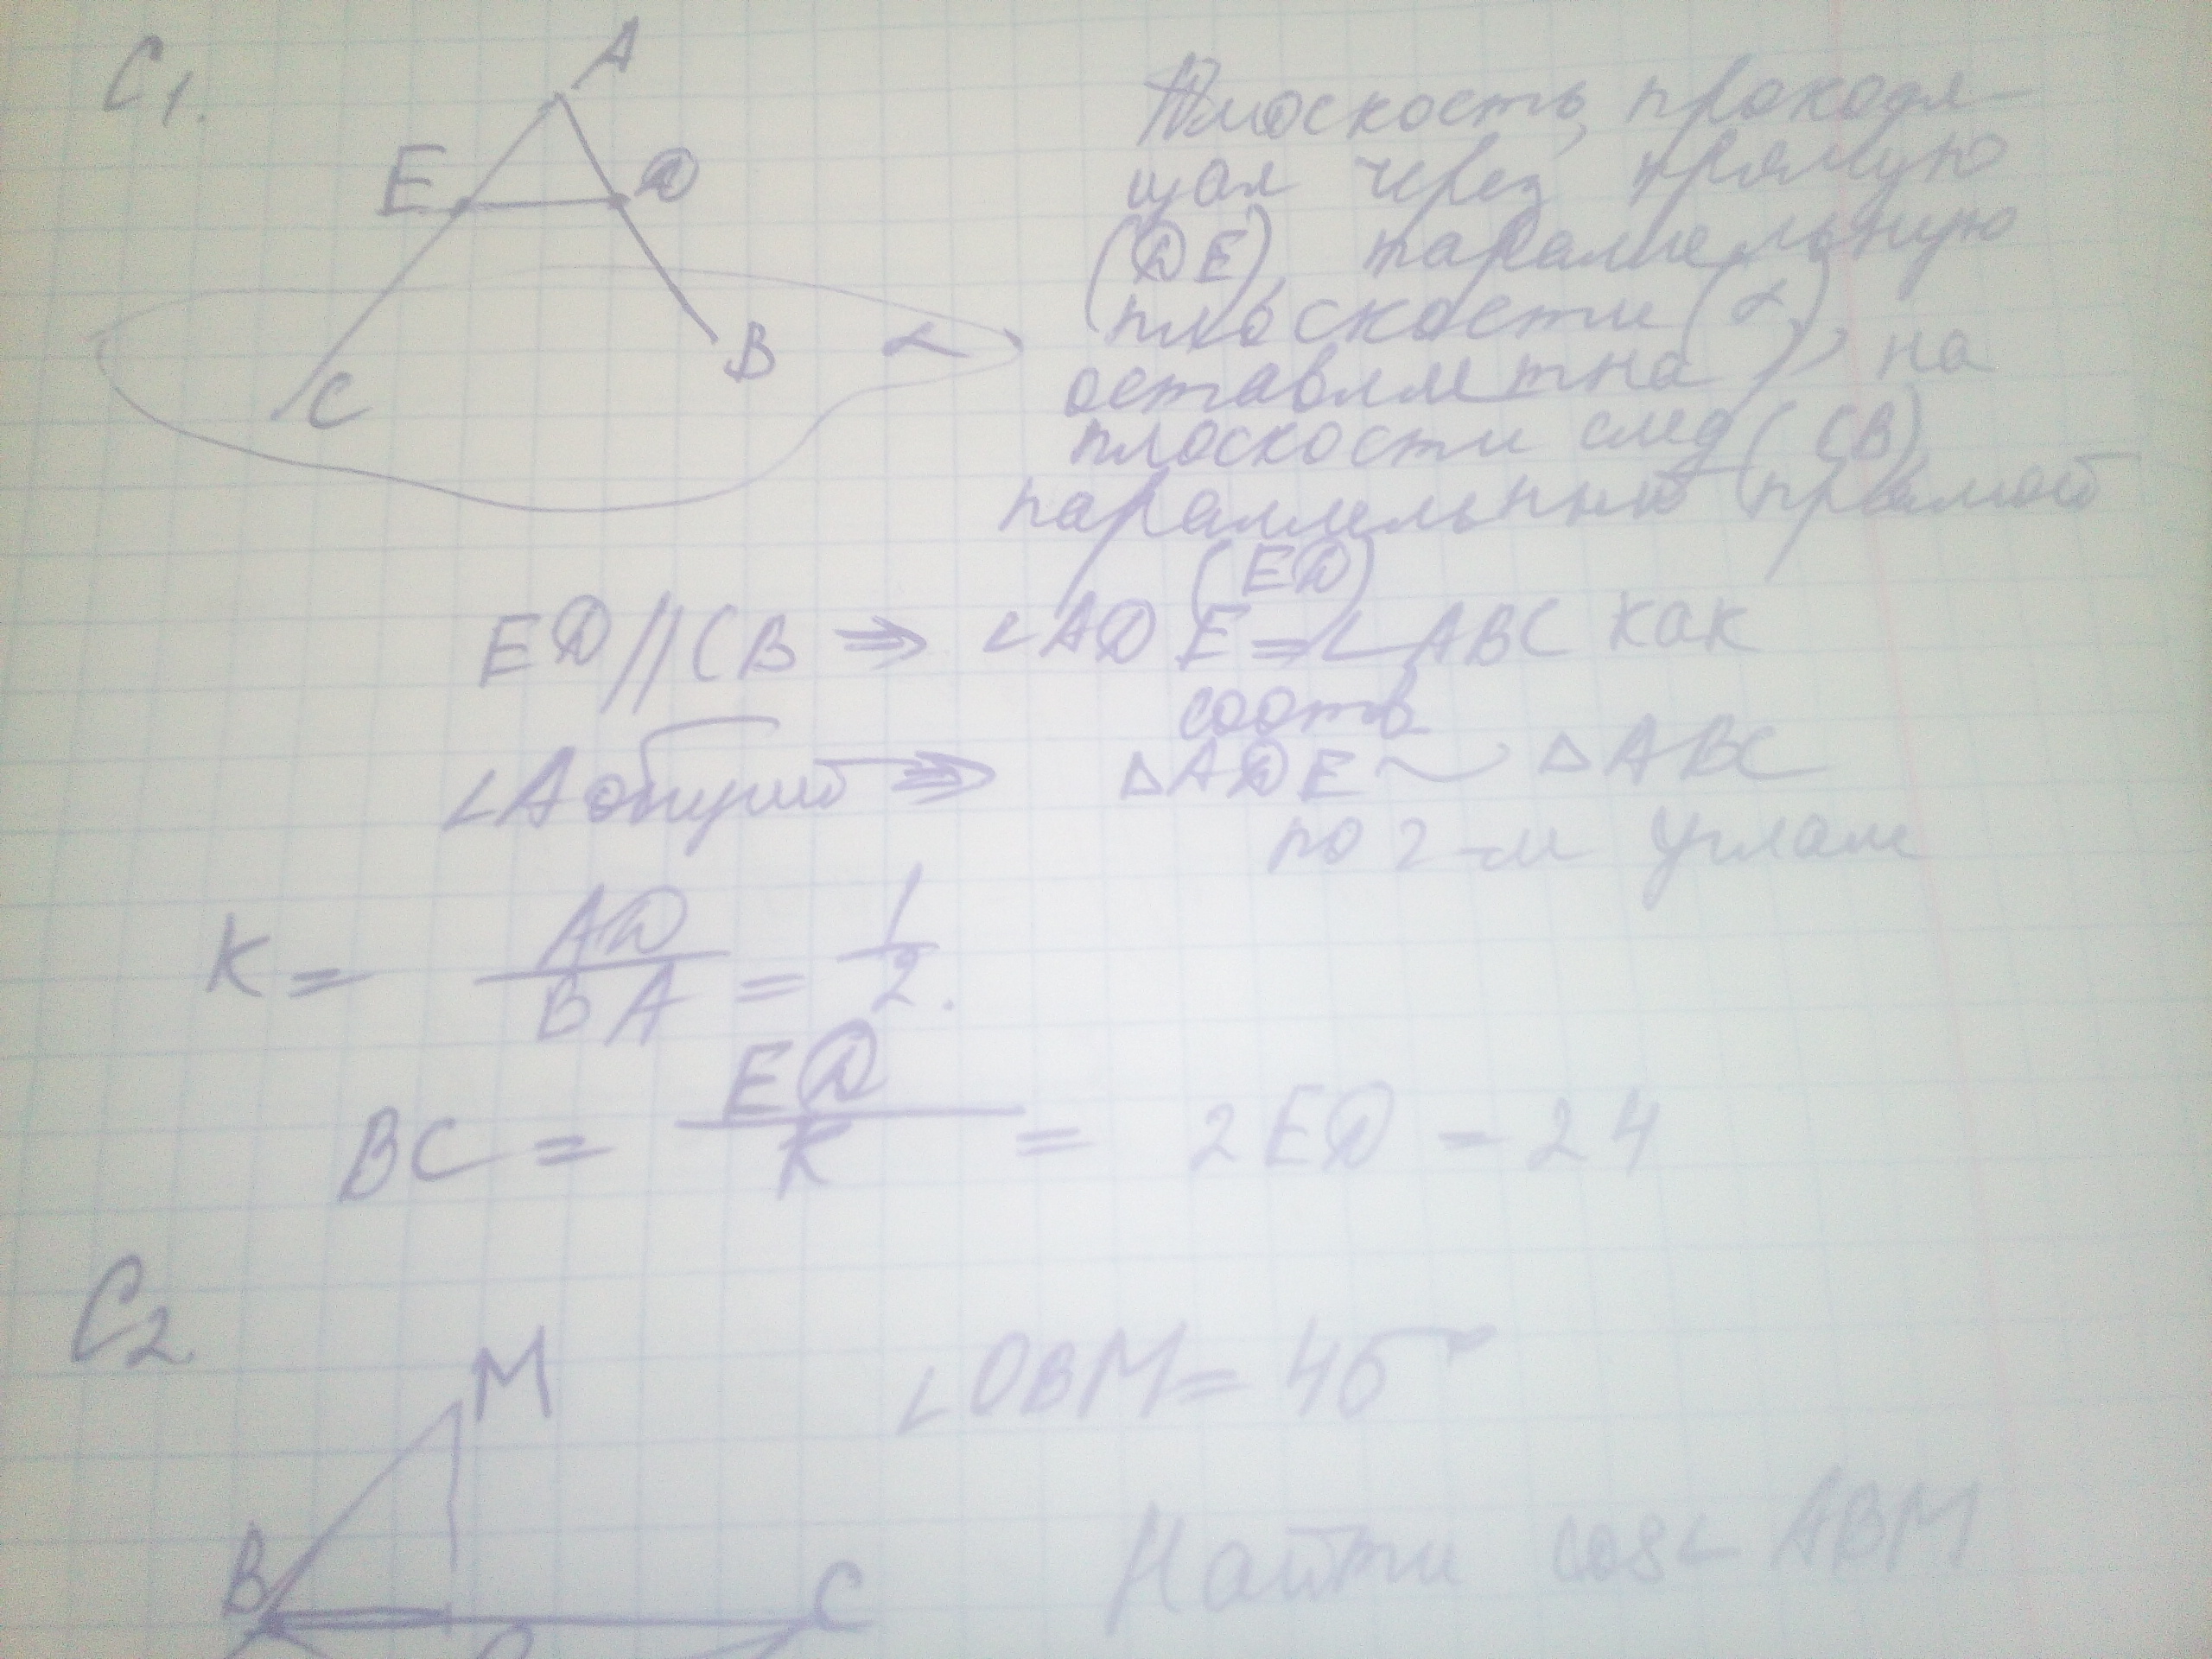 C1.
A
E
D
C
B
α
Плоскость, проходя-
щая через прямую
(DE), паралельную
плоскости (α), на
оставляет на
плоскости след (CB)
параллельный прямой
(ED)
ED//CB ⇒ ∠ADE=∠ABC как
соотв
∠A общий ⇒ △ADE ~ △ABC
по 2-м углам
K = AD/BA = 1/2.
BC = ED/K = 2ED = 24
C2
M
∠OBM = 45°
Найти cos∠ABM
B
C
O